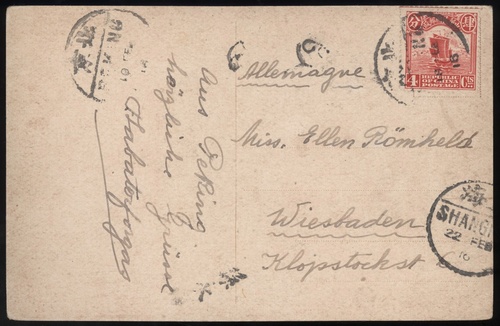 Allemagne
Miss. Ellen Römheld
Wiesbaden
Klopstockst
Aus Peking
herzliche Grüsse
分
4 Cts
REPUBLIC
OF CHINA
POSTAGE
SHANGH
22 FEB
16